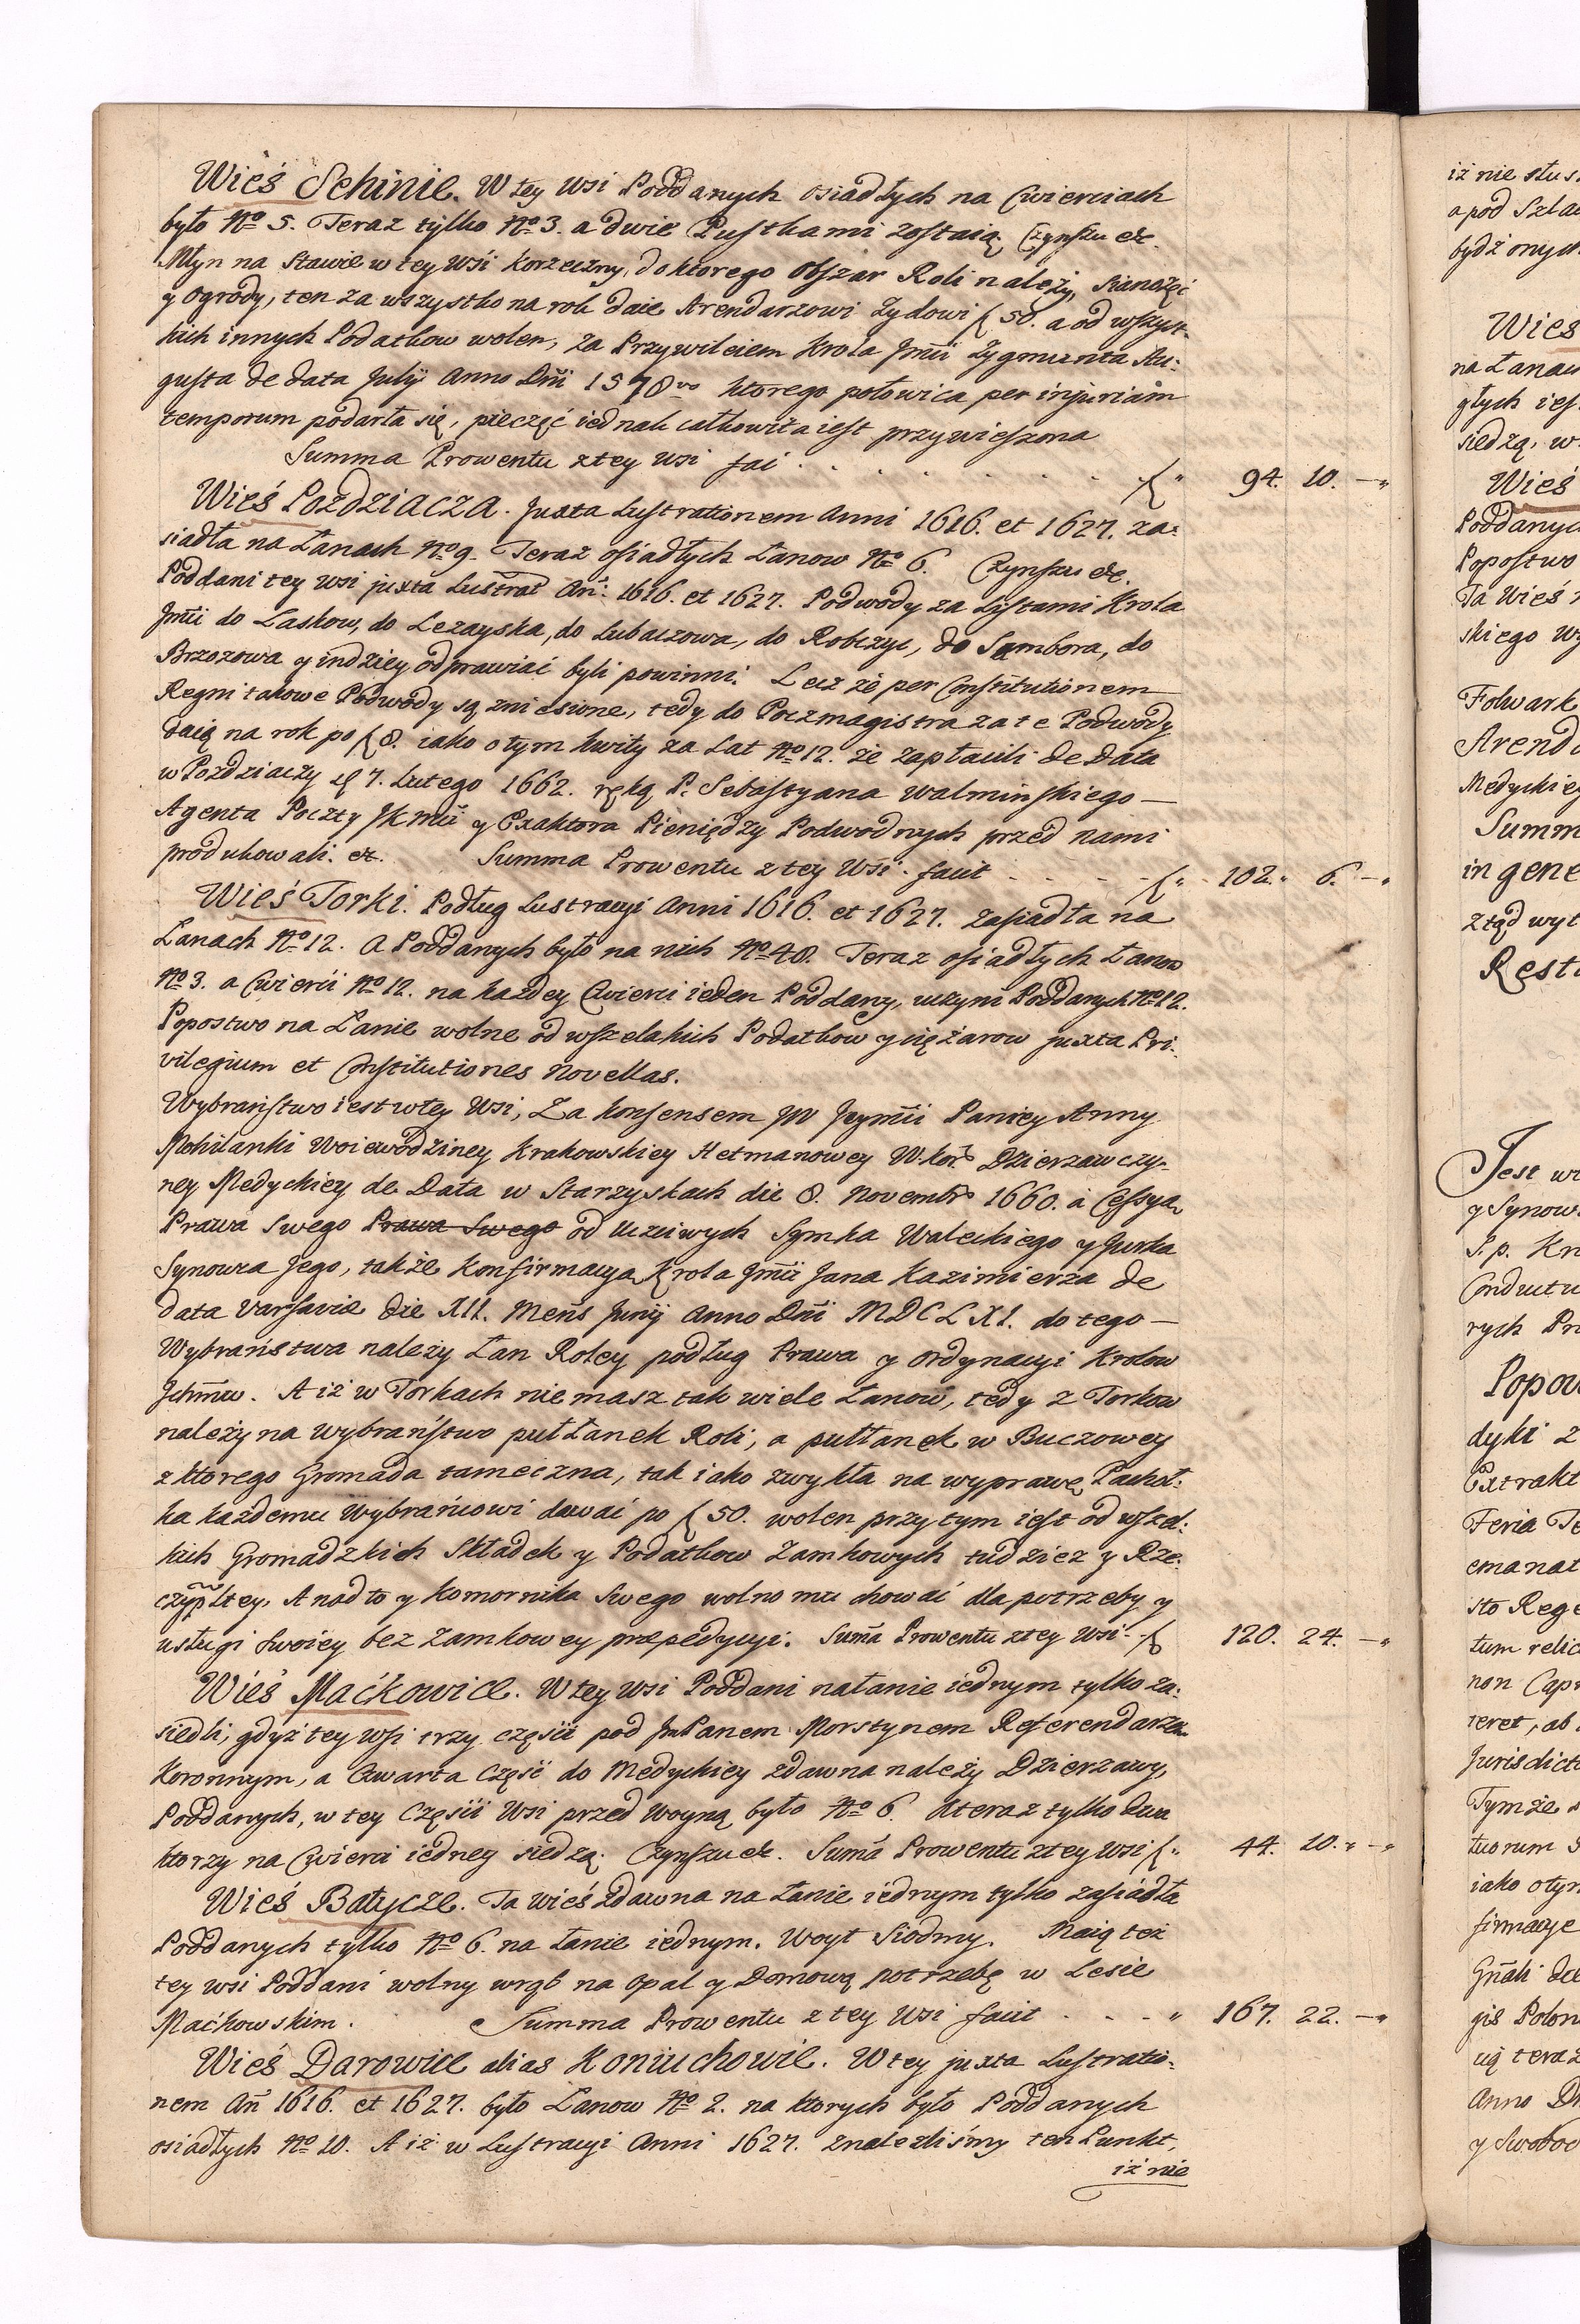 Wieś Sehinie. W tey Wsi Poddanych osiadłych na Cwierciach
było No 5. Teraz tylko No 3. a dwie Pustkami zostaią. Czynszu &c.
Młyn na Stawie w tey Wsi Korzeczny, do ktorego Obszar Roli należy, Sianożęć
y Ogrody, ten za wszystko na rok daie Arendarzowi Zydowi f 50. a od wszyst-
kich innych Podatkow wolen, za Przywileiem Krola Jmći Zygmunta Au:
gusta de data Julij Anno Dni 1570 ktorego połowica per injuriam
temporum podarła się, pieczęć iednak całkowita iest przywieszona
Summa Prowentu z tey Wsi fai . . . . . . . f " 94. 10. —"
Wieś Pozdziacza. Juxta Lustrationem Anni 1616. et 1627. za:
siadła na Łanach No 9. Teraz osiadłych Łanow No 6. Czynszu &c.
Poddani tey Wsi juxta Lustrat An: 1616. et 1627. Podwody za Lystami Krola
Jmći do Laskow, do Lezayska, do Lubaczowa, do Robczyc, do Sambora, do
Brzozowa y indziey odprawiać byli powinni. Lecz że per Constitutionem
Regni takowe Podwody są zniesione, tedy do Poczmagistra za te Podwody
daią na rok po f 8. iako o tym kwity za Lat No 12. że zapłacili de Data
w Pozdziaczy 7. Lutego 1662. ręką P. Sebastyana Walminskiego —
Agenta Poczty JKMći y Exaktora Pieniędzy Podwodnych przed nami
produkowali. &c. Summa Prowentu z tey Wsi. facit . . . . f " 102. " 6. —"
Wieś Torki. Podług Lustracyi Anni 1616. et 1627. zasiadła na
Łanach No 12. a Poddanych było na nich No 48. Teraz osiadłych Łanow
No 3. a Cwierci No 12. na każdey Cwierci ieden Poddany, uczyni Poddanych No 12.
Popostwo na Łanie wolne od wszelakich Podatkow y ciężarow juxta Pri:
vilegium et Constitutiones novellas.
Wybraństwo iest w tey Wsi, Za konsensem JW Jeymći Paniey Anny
Mohilanki Woiewodziney Krakowskiey Hetmanowey W. Kor. Dzierzawczy-
ney Medyckiey de Data w Starzyskach die 8. Novembr 1660. a Cessya
Prawa Swego Prawa Swego od Uczciwych Symka Waleckiego y Jurka
Synowca Jego, także Konfirmacya Krola Jmći Jana Kazimierza de
data Varsavie die XII. Mens Junij Anno Dni MDCLXI. do tego —
Wybraństwa należy Łan Roley podług Prawa y Ordynacyi Krolow
Jchmćw. A iż w Torkach nie masz tak wiele Łanow, tedy z Torkow
należy na wybraństwo puł Łanek Roli, a pułłanek w Buczowey
z ktorego Gromada tameczna, tak iako zwykła na wyprawę Pachoł:
ka każdemu Wybrańcowi dawać po f 50. wolen przy tym iest od wszel:
kich Gromadzkich Składek y Podatkow Zamkowych tudziez y Rze:
czypltey. A nadto y Komornika Swego wolno mu chować dla potrzeby y
usługi swoiey bez Zamkowey przepedycyi. Suma Prowentu z tey Wsi. f 120. 24. —"
Wieś Maćkowice. W tey Wsi Poddani na Łanie iednym tylko za:
siedli, gdyż tey Wsi trzy części pod JmPanem Morstynem Referendarzem
Koronnym, a Czwarta Część do Medyckiey zdawna należy Dzierzawy,
Poddanych, w tey Części Wsi przed Woyną było No 6. A teraz tylko dwa
ktorzy na Cwierci iedney siedzą. Czynszu &c. Suma Prowentu z tey Wsi f " 44. 10. " —"
Wieś Batycze. Ta wieś zdawna na Łanie iednym tylko zasiadła
Poddanych tylko No 6. na Łanie iednym. Woyt Siodmy. Maią też
tey Wsi Poddani wolny wrąb na Opał y Domową potrzebę w Lesie
Maćkowskim. Summa Prowentu z tey Wsi facit . . . " 167. 22. —"
Wieś Darowice alias Koniuchowice. W tey juxta Lustratio:
nem An 1616. et 1627. było Łanow No 2. na ktorych było Poddanych
osiadłych No 10. A iż w Lustracyi Anni 1627. znalezliśmy ten Punkt,
iż nie
iż nie
a pod
Wieś
Wieś
Folwark
Summ
in gene
Jest